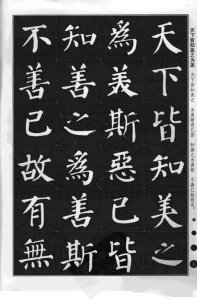 天下皆知美之
為美斯惡已皆
知善之為善斯
不善已故有無
天下皆知美之为美